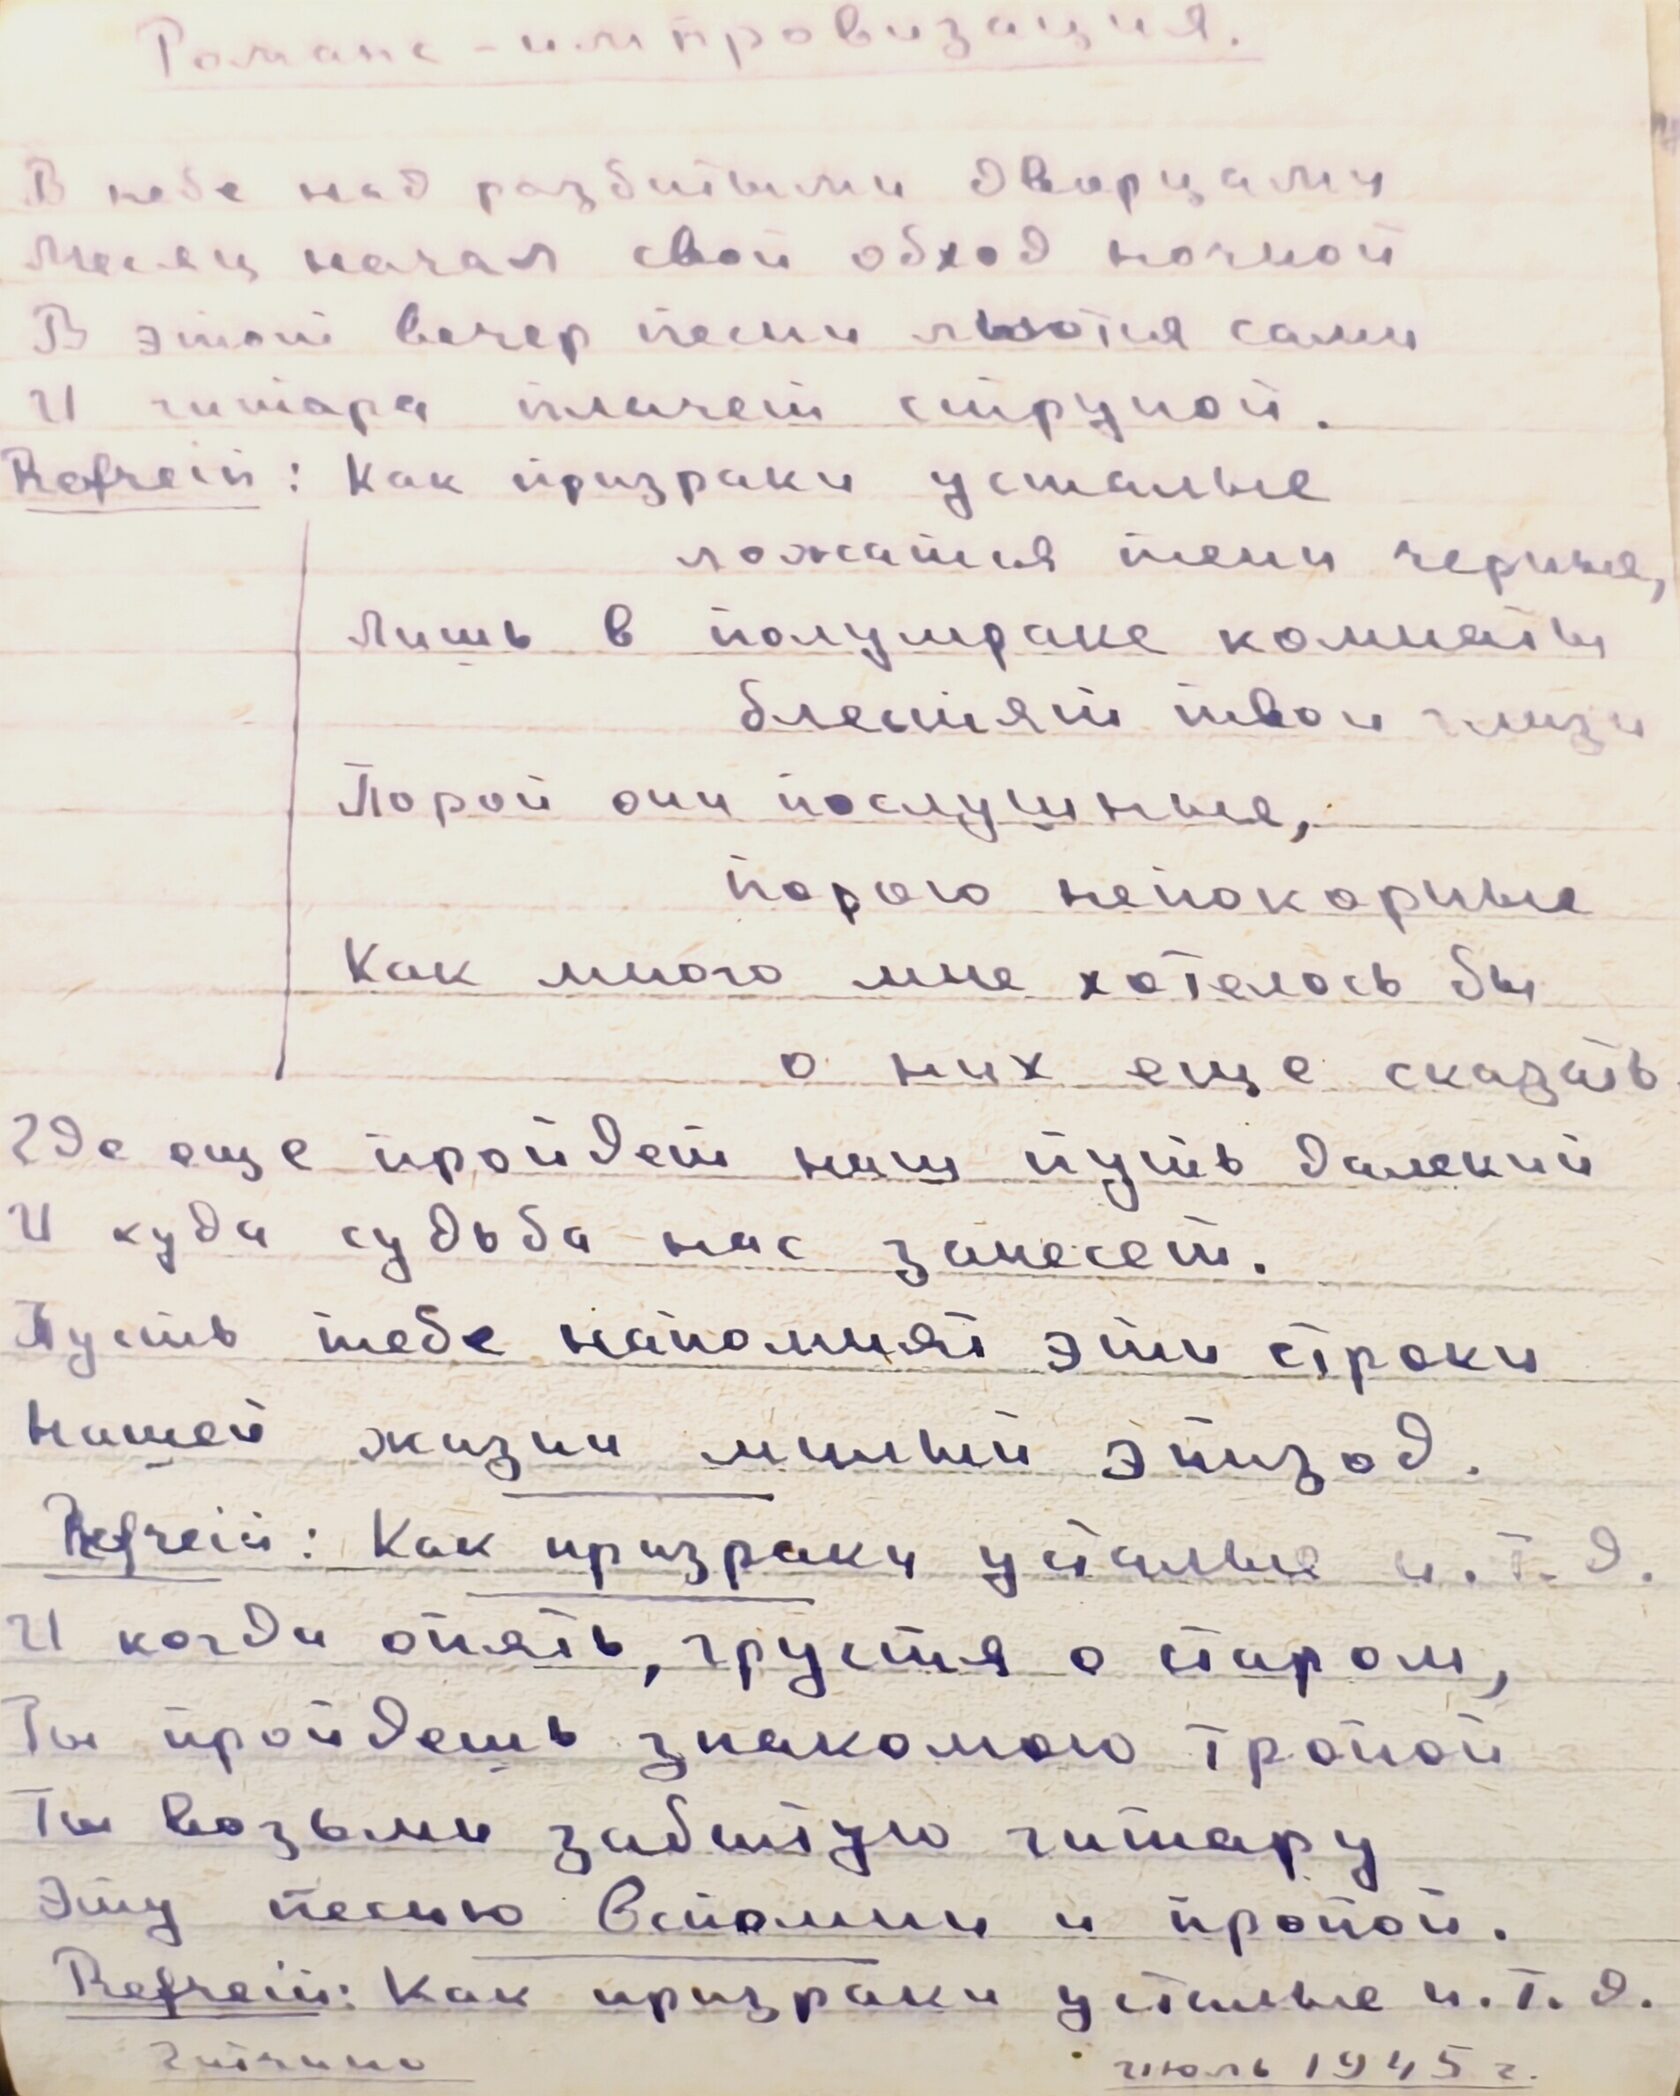 Романс-импровизация.
В небе над разбитыми дворцами
Месяц начал свой обход ночной
В этот вечер песни льются сами
И гитара плачет струной.
Refrein: Как призраки усталые
ложатся тени черные,
Лишь в полумраке комнаты
блестят твои глаза
Порой они послушные,
порою непокорные
Как много мне хотелось бы
о них еще сказать
Где еще пройдет наш путь далекий
И куда судьба нас занесет.
Пусть тебе напомнят эти строки
Нашей жизни милый эпизод.
Refrein: Как призраки усталые и.т.д.
И когда опять, грустя о старом,
Ты пройдешь знакомою тропой
Ты возьми забытую гитару
Эту песню вспомни и пропой.
Refrein: Как призраки усталые и.т.д.
Гатчино июль 1945 г.